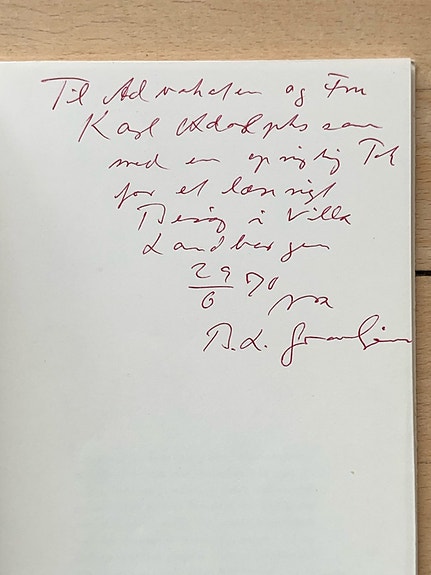 Til Advokaten og Fru
Karl Adolphsson
med en oprigtig Tak
for et lærerigt
Besøg i Villa
Landbergen
29/6 70
fra
B. L.